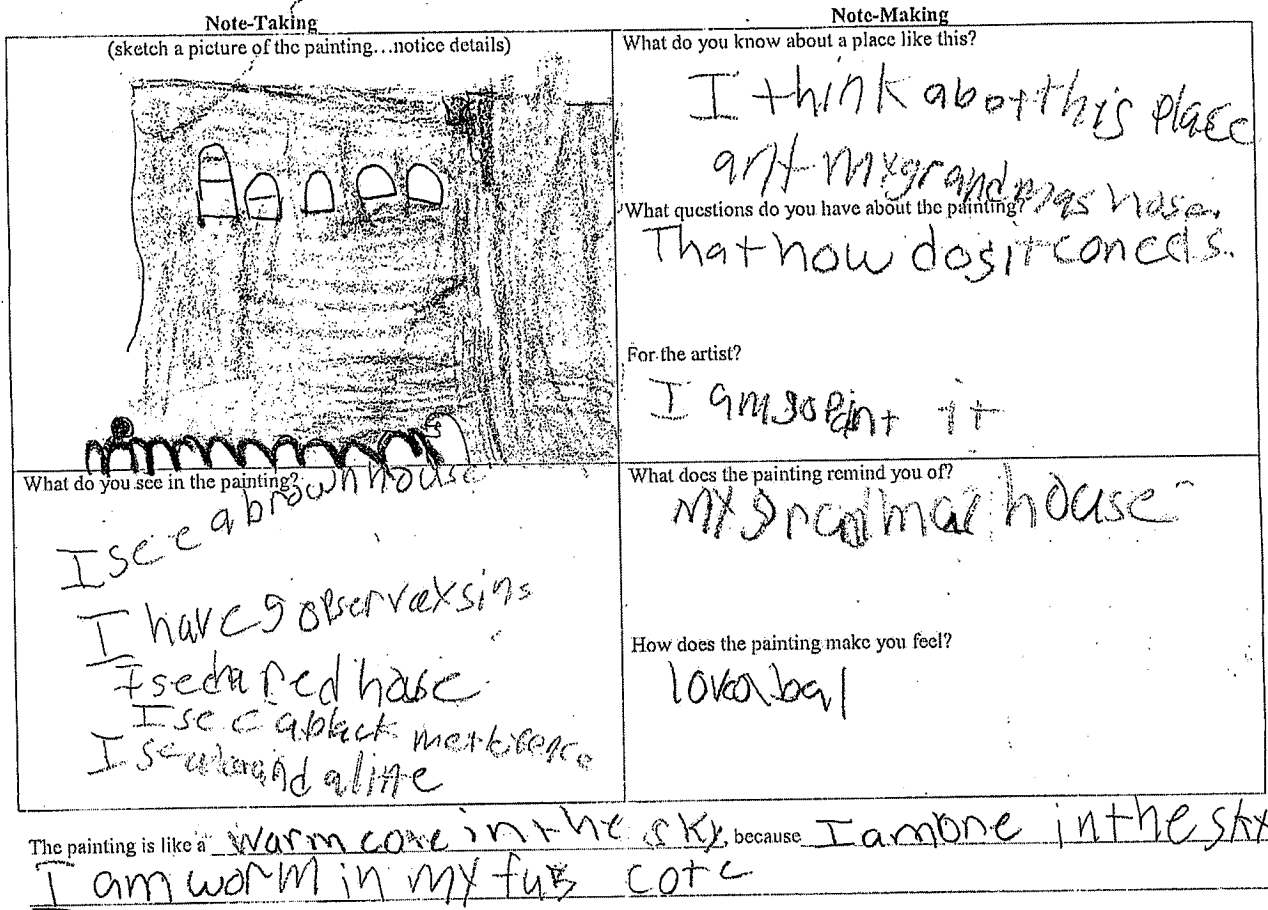 Note-Taking
(sketch a picture of the painting…notice details)
What do you see in the painting?
I see a brown house
I have 9 observaxsins
I sedn a red hase
I see a black
I alitte
Note-Making
What do you know about a place like this?
I think abot this place
ant my grandmas hose.
What questions do you have about the painting?
That how dos it coneds.
For the artist?
I am so Peint it
What does the painting remind you of?
my grandmas house
How does the painting make you feel?
lovabal
The painting is like a warm cote in the sky, because I am one in the sky
I am worm in my fus cote